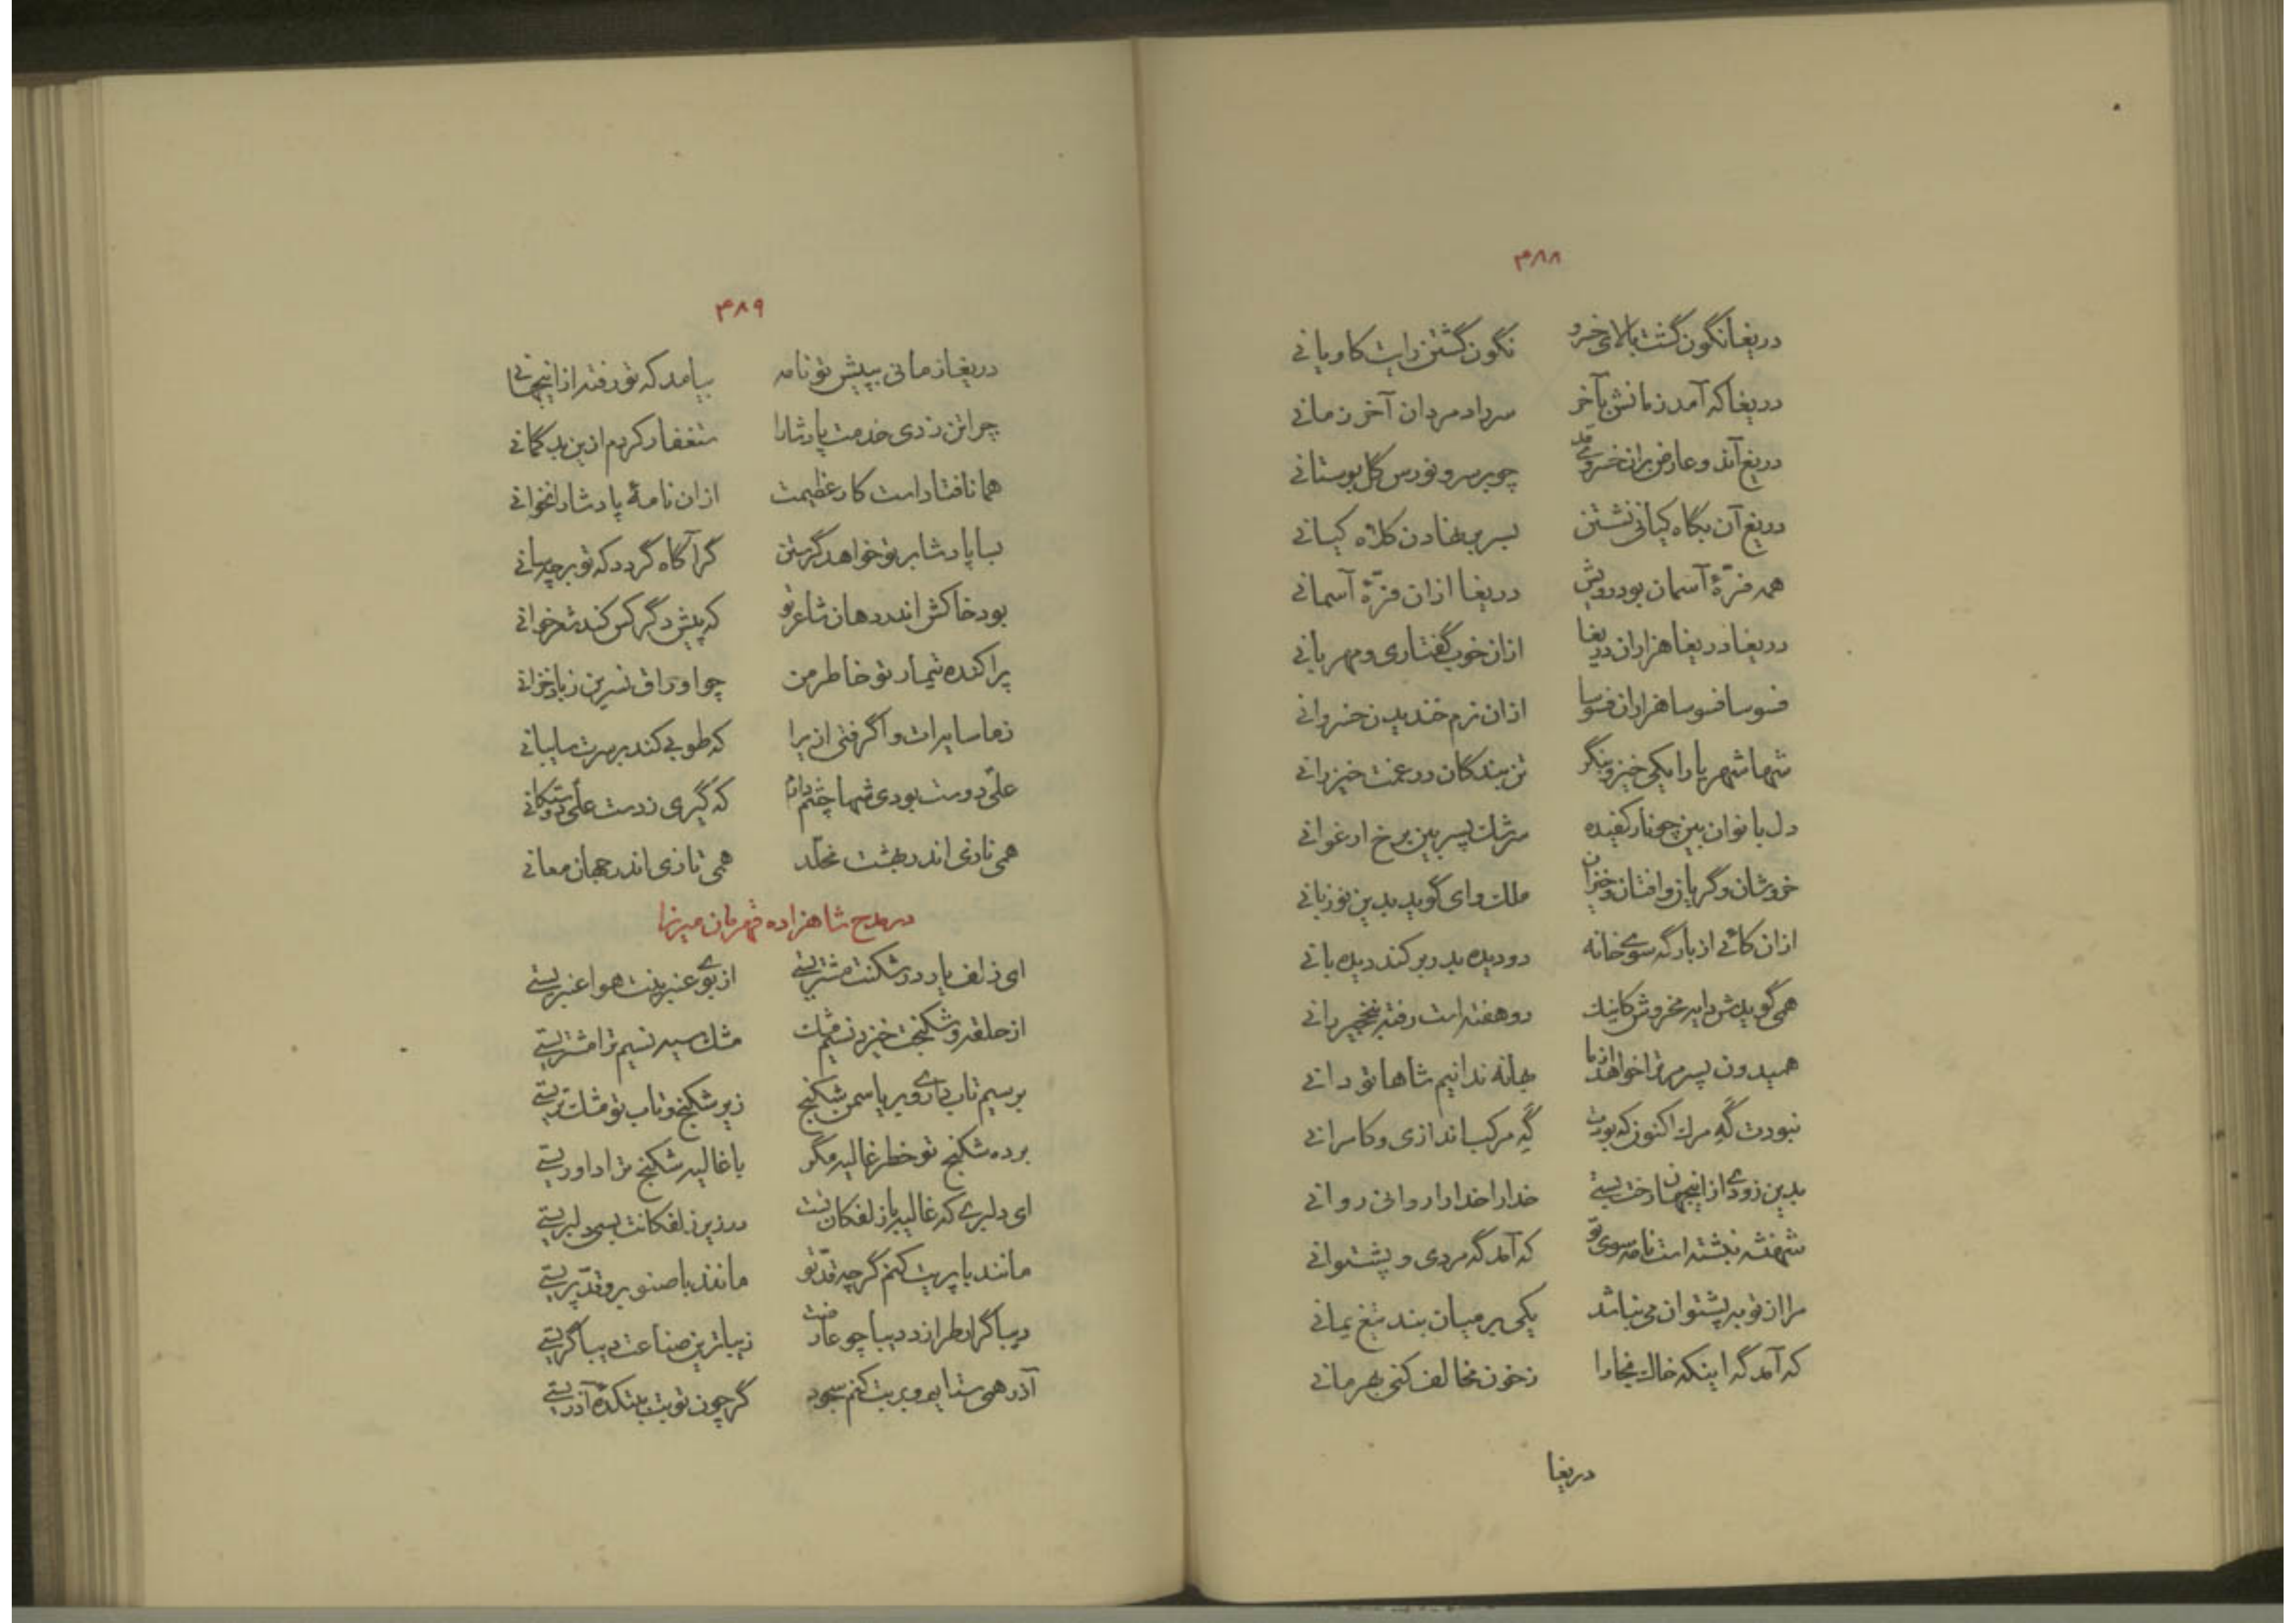 ۴۸۸
دریغا نگون گشت بالای خسرو نگون گشتن رایت کاویانی
دریغا که آمد زمانش بآخر سرداد مردان آخر زمانی
دریغ آن قد و عارض برّان خسروی چو بر سرو نورس گل بوستانی
دریغ آن بگاه کیانی نشستن بسر بر نهادن کلاه کیانی
همه فرّهٔ آسمان بود رویش دریغا ازان فرّهٔ آسمانی
دریغا دریغا هزاران دریغا ازان خوب گفتاری و مهربانی
فسوسا فسوسا هزاران فسوسا ازان نرم خندیدن خسروانی
شها شهریارا یکی خیز و بنگر تن بندگان در غمت خیزرانی
دل بانوان بین چو نار کفیده سرشک پسر بین برخ ارغوانی
خروشان و گریان و افتان و خیزان ملک وای گوید بدین نوزبانی
ازان کائی از بارگه سوی خانه دو دیده بدر بر کند دیده بانی
همی گویدش دایه مخروش کاینک دو هفته است رفته بنخجیر رانی
همیدون پسر مر ترا خواهد از ما بهانه ندانیم شاها تو دانی
نبودت گَهِ مرگ اکنون که بودت گَهِ مرکب اندازی و کامرانی
بدین زودی از اینجهان رخت بستی خدارا خدارا روانی روانی
شهنشه نبشته است نامه سوی تو که آمد گه مردی و پشتوانی
مرا از تو به پشتوان می نباشد یکی بر میان بند تیغ یمانی
که آمد گه اینکه خاک بخارا ز خون مخالف کنی بهرمانی
دریغا
۴۸۹
دریغا زمانی بپیش تو نامه بیامد که تو رفته از اینجهانی
چرا تن زدی خدمت پادشا را ستغفار کردم ازین بد گمانی
همانا فتاد است کار عظیمت ازان نامهٔ پادشا را نخوانی
بسا پادشا بر تو خواهد گرستن گر آگاه گردد که تو بر چه سانی
بود خاکش اندر دهان شاعر تو که پیش دگر کس کند شعر خوانی
پراکنده تیمار تو خاطر من چو اوراق نسرین ز باد خزانی
ز ما سایه رات واگرفتی ازیرا که طوبی کند بر سرت سایبانی
علی دوست بودی شها چشم دارم که گیری ز دست علی دوستکانی
همی نازی اندر بهشت مخلّد همی تازی اندر جهان معانی
در مدح شاهزاده قهرمان میرزا
ای زلف یار در شکنت مشتریستی از بوی عنبرینت هوا عنبریستی
از حلقه و شکنجت خیزد نسیم مشک مشک سیه نسیم ترا مشتریستی
بر سیم تاب داری و بر یاسمن شکنج زیر شکنج و تاب تو مشک تریستی
برده شکنج تو خطر غالیه مگر با غالیه شکنج ترا داوریستی
ای دلبری که غالیه بار زلفکان تست در زیر زلفکانت بسی دلبریستی
مانند با پریت کنم گر چه قدّ تو مانند با صنوبر و قدّ پریستی
دیباگر ار طرازد دیبا چو عارضت زیباترین صناعت دیباگریستی
آذر همی ستایم و بر بت کنم سجود گر چون تو بت ببتکدهٔ آذریستی